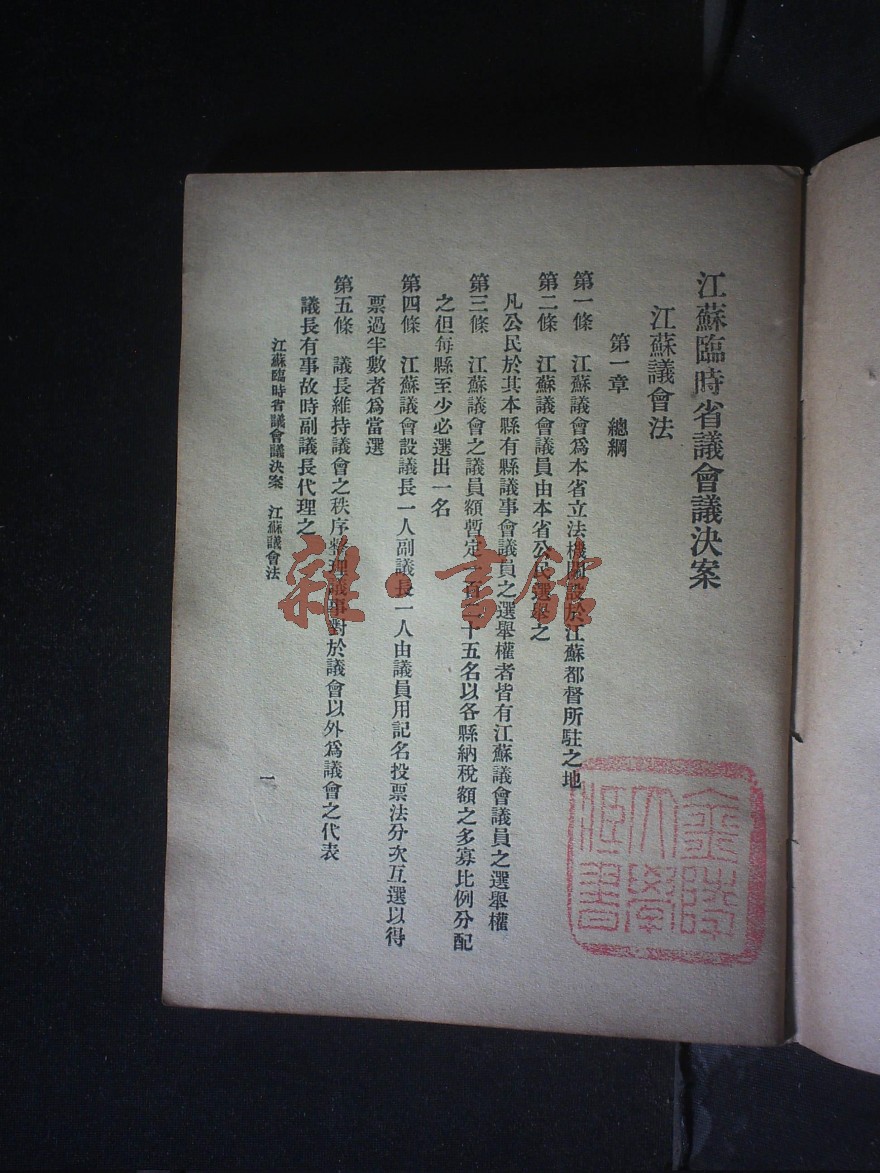 江蘇臨時省議會議決案
江蘇議會法
第一章 總綱
第一條 江蘇議會爲本省立法機關設於江蘇都督所駐之地
第二條 江蘇議會議員由本省公民選舉之
凡公民於其本縣有縣議事會議員之選舉權者皆有江蘇議會議員之選舉權
第三條 江蘇議會之議員額暫定一百 十五名以各縣納稅額之多寡比例分配
之但每縣至少必選出一名
第四條 江蘇議會設議長一人副議長一人由議員用記名投票法分次互選以得
票過半數者爲當選
第五條 議長維持議會之秩序整理議事對於議會以外爲議會之代表
議長有事故時副議長代理之
江蘇臨時省議會議決案 江蘇議會法
一
金陵大學藏書
雜·書館